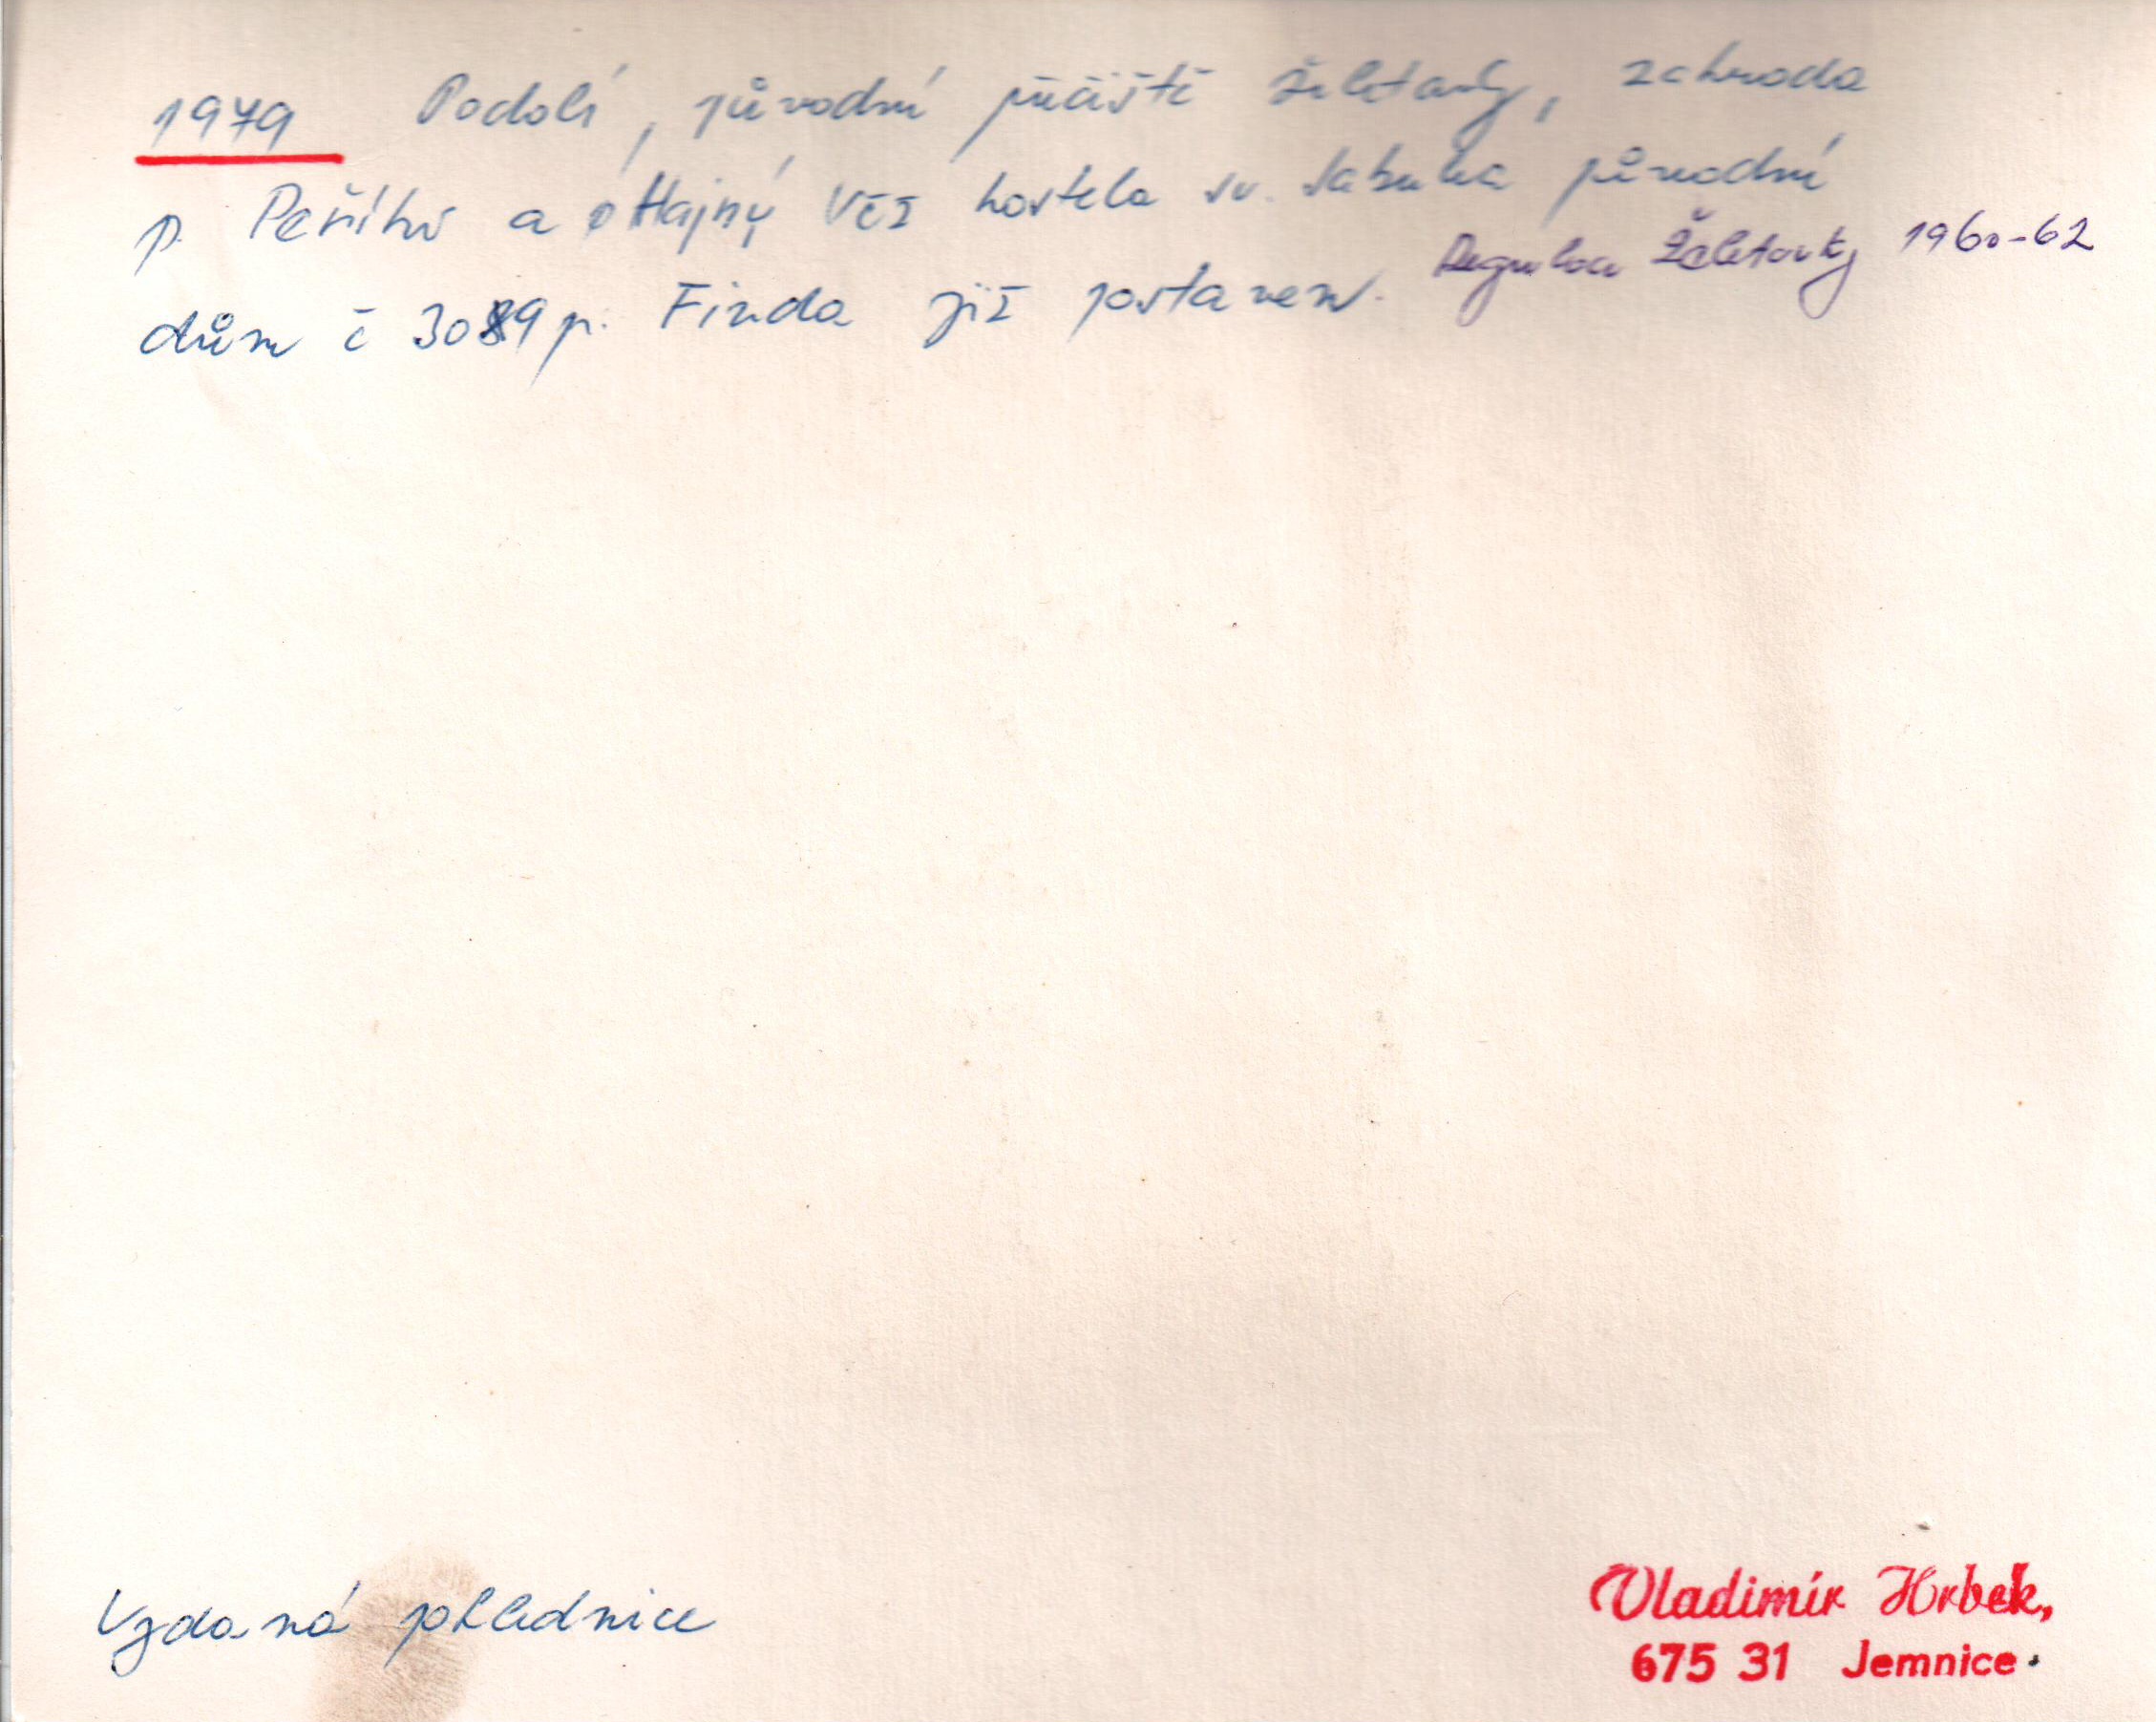 1979 Podolí, původní řečiště Želetavky, zahrada
p. Pešího a p Hajný Věž kostela sv. Jakuba původní
dům č 3089 p. Finda již postaven. Regulace Želetavky 1960-62
Vydaná pohlednice
Vladimír Hrbek,
675 31 Jemnice.